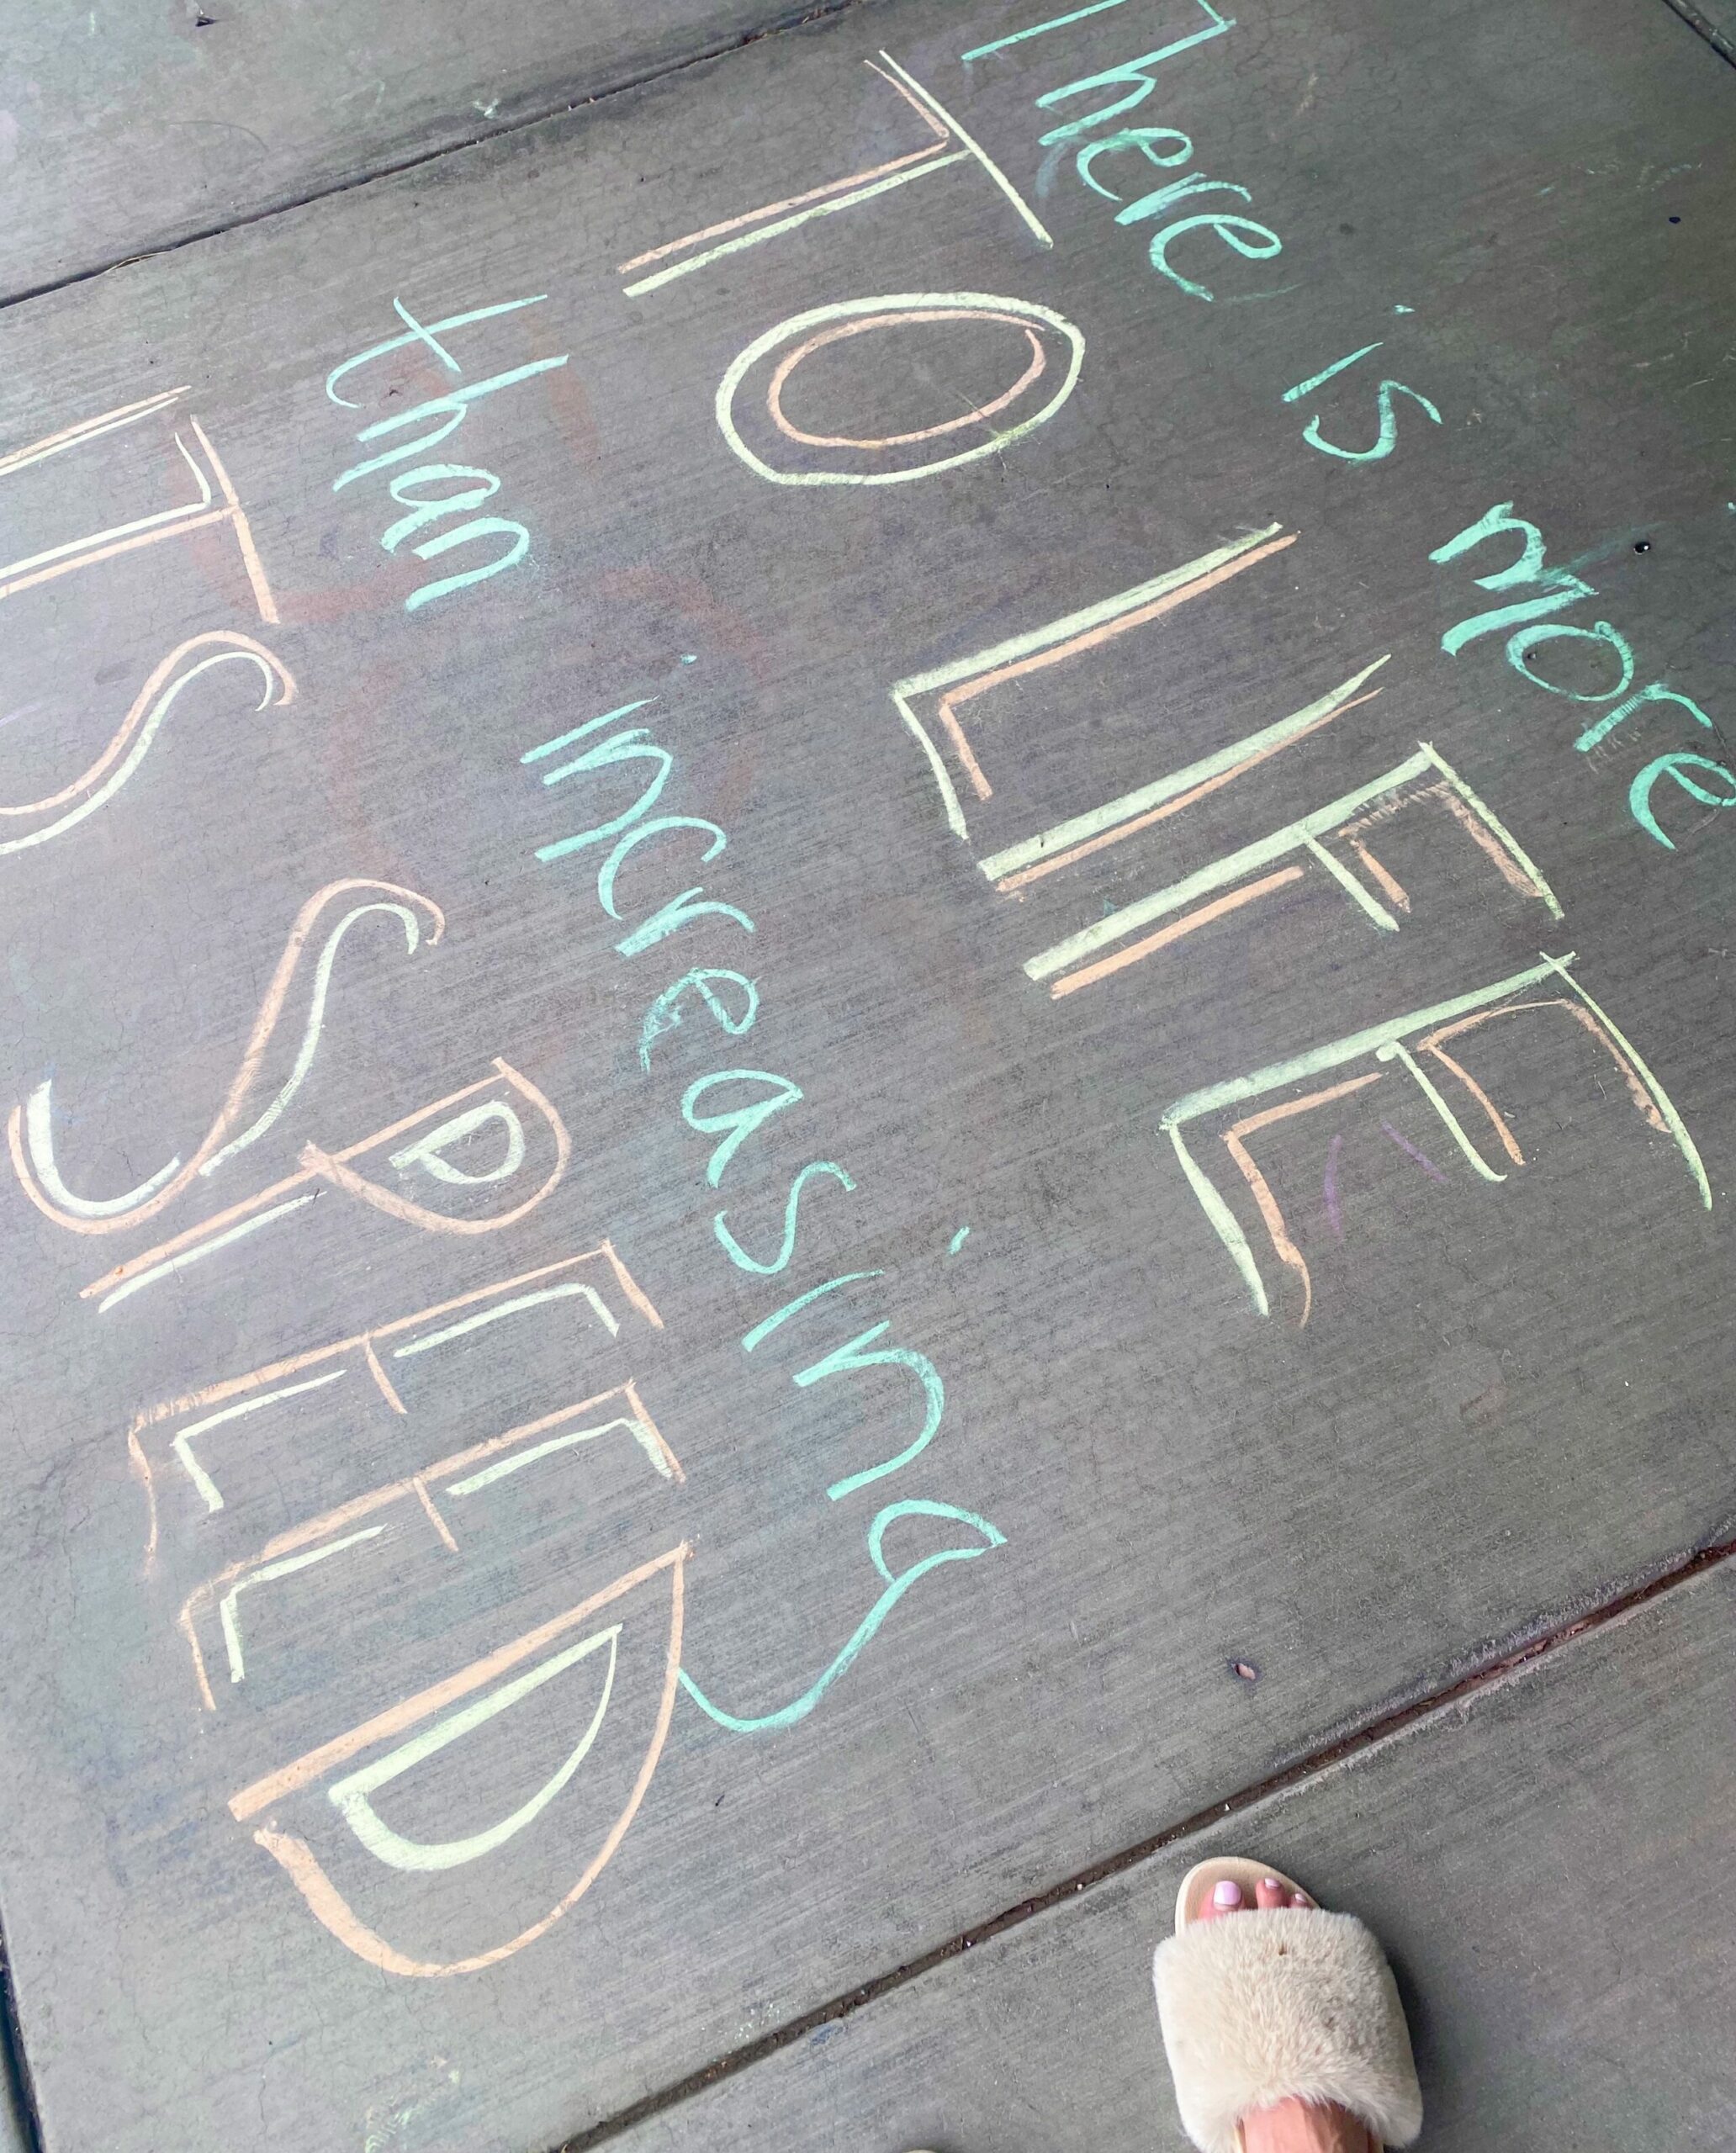 There is more
TO LIFE
than increasing
ITS SPEED